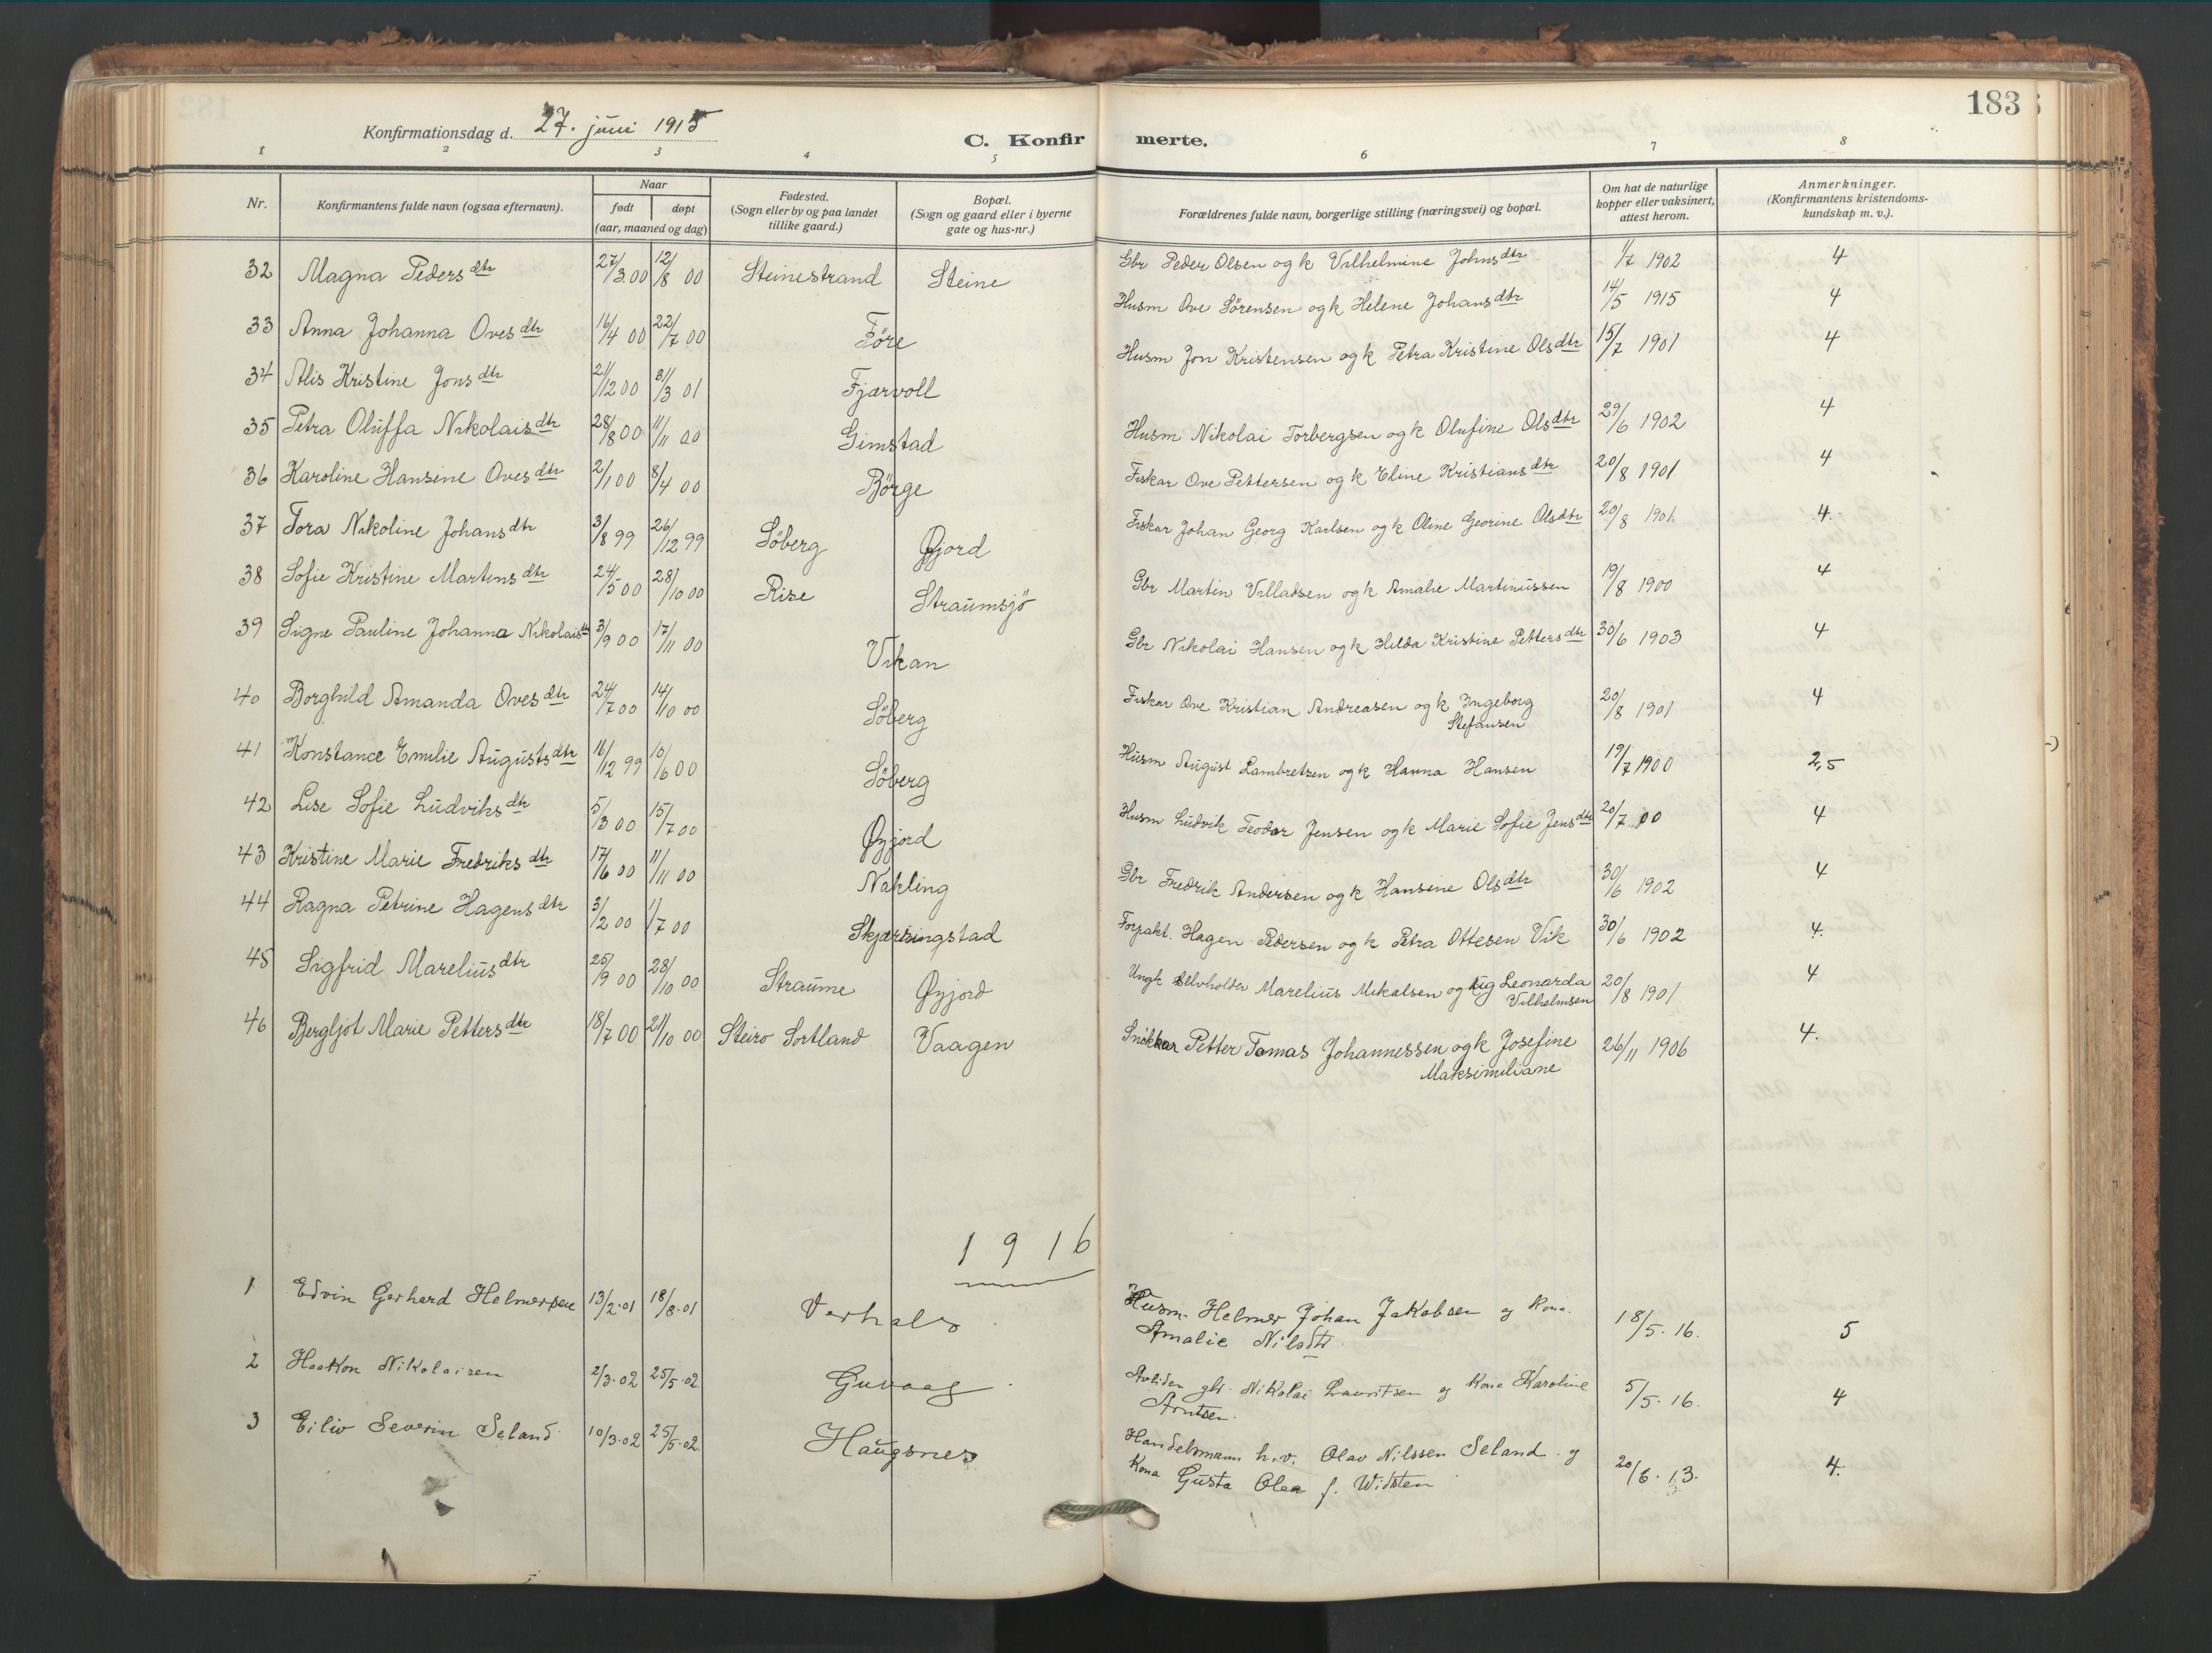 183
Konfirmationsdag d. 27. juni 1915 C. Konfirmerte.
1 2 3 4 5 6 7 8
Nr. | Konfirmantens fulde navn (ogsaa efternavn). | Naar født døpt (aar, maaned og dag) | Fødested. (Sogn eller by og paa landet tillike gaard.) | Bopæl. (Sogn og gaard eller i byerne gate og hus-nr.) | Forældrenes fulde navn, borgerlige stilling (næringsvei) og bopæl. | Om hat de naturlige kopper eller vaksinert, attest herom. | Anmerkninger. (Konfirmantens kristendomskundskap m. v.).
32 Magna Pedersdtr 27/3 00 12/8 00 Steinestrand Steine Gbr Peder Olsen og k Vilhelmine Johnsdtr 1/7 1902 4
33 Anna Johanna Ovesdtr 16/4 00 22/7 00 Føre Husm Ove Sørensen og k Helene Johansdtr 14/5 1915 4
34 Alis Kristine Jonsdtr 21/12 00 8/3 01 Fjærvoll Husm Jon Kristensen og k Petra Kristine Olsdtr 15/7 1901 4
35 Petra Oluffa Nikolaisdtr 28/8 00 11/11 00 Gimstad Husm Nikolai Torbergsen og k Olufine Olsdtr 29/6 1902 4
36 Karoline Hansine Ovesdtr 2/1 00 8/4 00 Børge Fiskar Ove Pettersen og k Eline Kristiansdtr 20/8 1901 4
37 Tora Nikoline Johansdtr 3/8 99 26/12 99 Søberg Øyjord Fiskar Johan Georg Karlsen og k Oline Georine Olsdtr 20/8 1901 4.
38 Sofie Kristine Martinsdtr 24/5 00 28/10 00 Rise Straumsjø Gbr Martin Villatsen og k Amalie Martinussen 19/8 1900 4
39 Signe Pauline Johanna Nikolaisdtr 3/9 00 17/11 00 Vikan Gbr Nikolai Hansen og k Hilda Kristine Pettersdtr 30/6 1903 4
40 Borghild Amanda Ovesdtr 24/7 00 14/10 00 Søberg Fiskar Ove Kristian Andreasen og k Ingeborg Stefansen 20/8 1901 4
41 Konstance Emilie Augustsdtr 16/12 99 10/6 00 Søberg Husm August Lambretsen og k Hanna Hansen 19/7 1900 2,5
42 Lise Sofie Ludviksdtr 5/3 00 15/7 00 Øyjord Husm Ludvik Teodor Jensen og k Marie Sofie Jensdtr 20/7 00 4
43 Kristine Marie Fredriksdtr 17/6 00 11/11 00 Nakling Gbr Fredrik Andersen og k Hansine Olsdtr 30/6 1902 4
44 Ragna Petrine Hagensdtr 3/2 00 1/7 00 Skjærringstad Forpakt. Hagen Pedersen og k Petra Ottesen Vik 30/6 1902 4.
45 Sigfrid Mareliusdtr 25/9 00 28/10 00 Straume Øyjord Ungk selvholder Marelius Mikalsen og pig Leonarda Vilhelmsen 20/8 1901 4
46 Bergljot Marie Pettersdtr 18/7 00 21/10 00 Steiro Sortland Vaagen Snekkar Petter Tomas Johannessen og k Josefine Maksimiliane 26/11 1906 4.
1916
1 Edvin Gerhard Helmersen 13/2.01 18/8.01 Verhals Husm. Helmer Johan Jakobsen og kona. Amalie Nilsdtr. 18/5.16. 5
2 Haakon Nikolaisen 2/3.02 25/5.02 Guvaag Avliden gbr. Nikolai Lauritsen og kona Karoline Arntsen. 5/5.16. 4
3 Eiliv Severin Seland 10/3.02 25/5.02 Haugsnes Handelsmann h.v. Olav Nilssen Seland og kona Gusta Olea f. Widsten 20/6.13. 4.